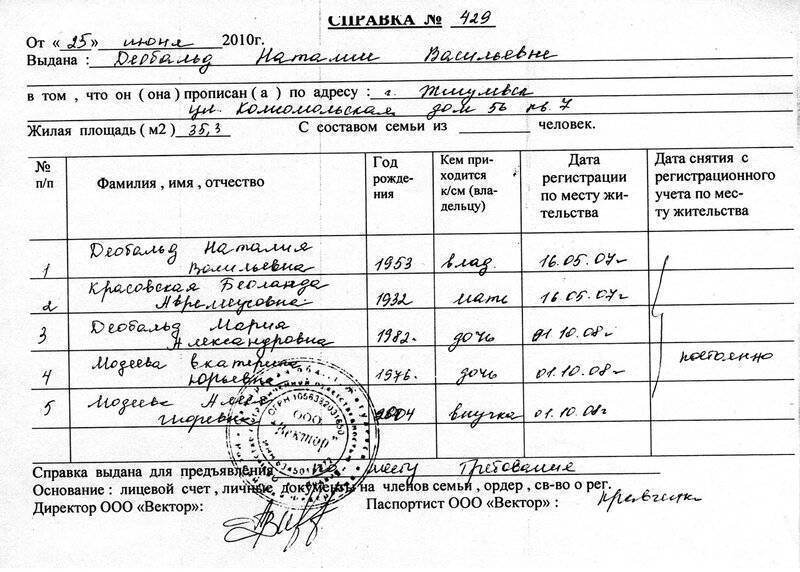 СПРАВКА № 429
От « 25 » июня 2010г.
Выдана : Деобальд Наталии Васильевне
в том , что он ( она ) прописан ( а ) по адресу : г. Жигулевск
ул. Комсомольская дом 56 кв. 7
Жилая площадь ( м2 ) 35,3 С составом семьи из человек.
№ п/п
Фамилия , имя , отчество
Год рожде-
ния
Кем при-
ходится
к/см (вла-
дельцу)
Дата
регистрации
по месту жи-
тельства
Дата снятия с
регистрационного
учета по мес-
ту жительства
1 Деобальд Наталия
Васильевна 1953 влад. 16.05.07г
2 Красовская
1932 мать 16.05.07г
3 Деобальд Мария
Александровна 1982. дочь 01.10.08г
4 Модеева Екатерина
Юрьевна 1976. дочь 01.10.08г
постоянно
5 Модеева
2004 внучка 01.10.08г
ООО
"Вектор"
Справка выдана для предъявления по месту требования
Основание : лицевой счет , личные документы на членов семьи , ордер , св-во о рег.
Директор ООО «Вектор»: Паспортист ООО «Вектор» :